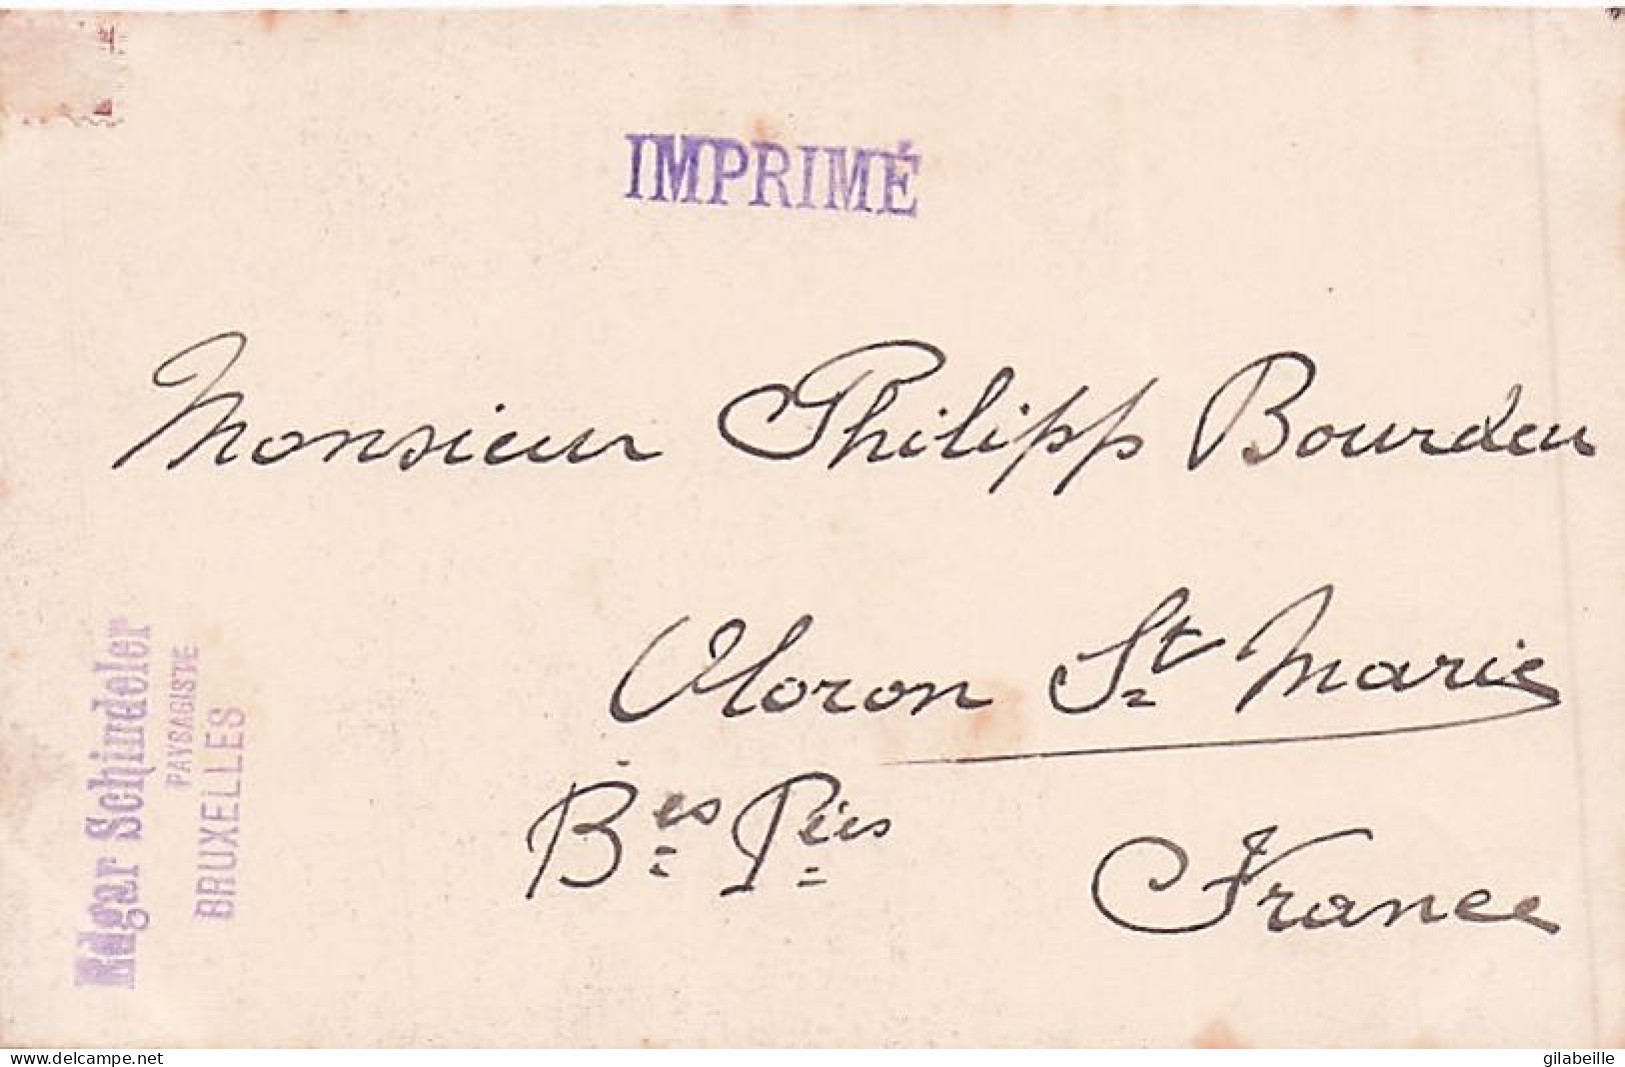 IMPRIMÉ
Monsieur Philipp Bourdeu
Oloron St Marie
Bes Pées
France
Edgar Schindeler
PAYSAGISTE
BRUXELLES
www.delcampe.net
gilabeille